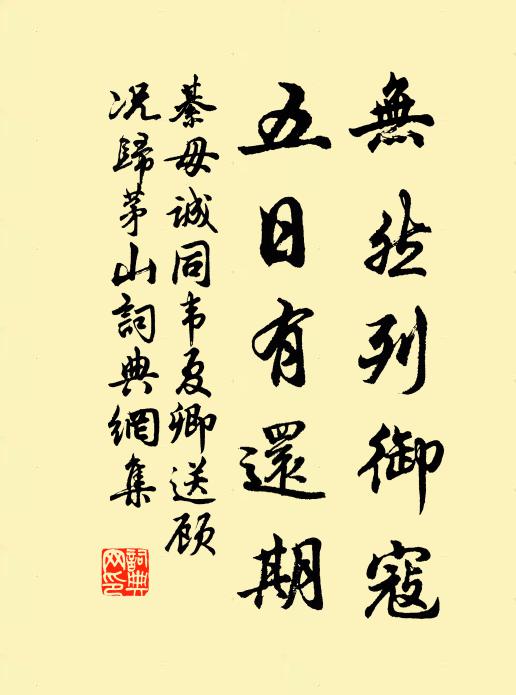 無然列御寇
五日有還期
綦毋誠同韦夏卿送顾
况歸茅山詞典網集
詞典网印